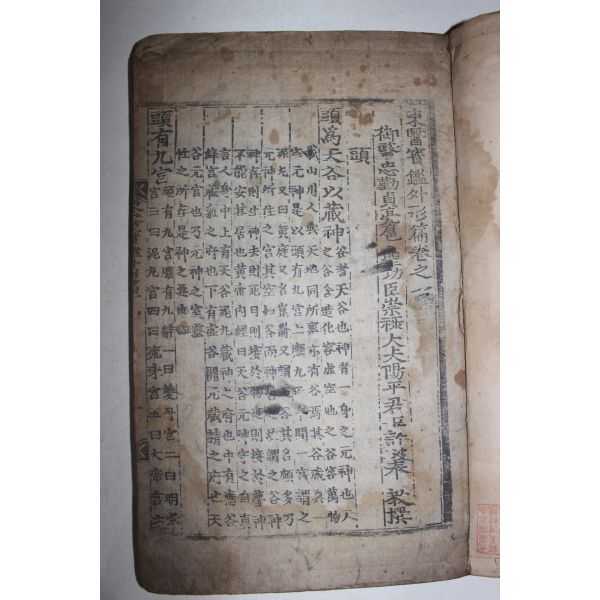 東醫寶鑑外形篇卷之一
御醫忠勤貞亮扈功臣崇祿大夫陽平君臣許浚奉 教撰
頭
頭爲天谷以藏神 谷者天谷也神者一身之元神也天
之谷含造化容虛空地之谷容萬物
載山川人與天地同所稟亦有谷焉其谷藏眞一
宅元神是以頭有九宮上應九天中間一宮謂之
泥丸又曰黃庭又名崑崙又謂天谷其名頗多乃
元神所住之宮其空如谷而神居之故謂之谷神
神存則生神去則死日則接於物夜則接於夢神
不能安其居也黃帝內經曰天谷元神守之自眞
言人身中上有天谷泥丸藏神之府也中有應谷
絳宮藏氣之府也下有虛谷關元藏精之府也天
谷元宮也乃元神之室靈
性之所存是神之要也
頭有九宮 頭有九宮腦有九瓣一曰雙丹宮二曰明堂
宮三曰泥丸宮四曰流珠宮五曰大帝宮六